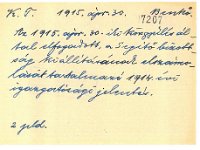 K. T. 1915. ápr. 30. Benkő
7207
Az 1915. ápr. 30.-iki közgyűlés ál-
tal elfogadott, a segítő bizott-
ság kiállításának elszámo-
lását tartalmazó 1914. évi
igazgatósági jelentés.
2 pld.